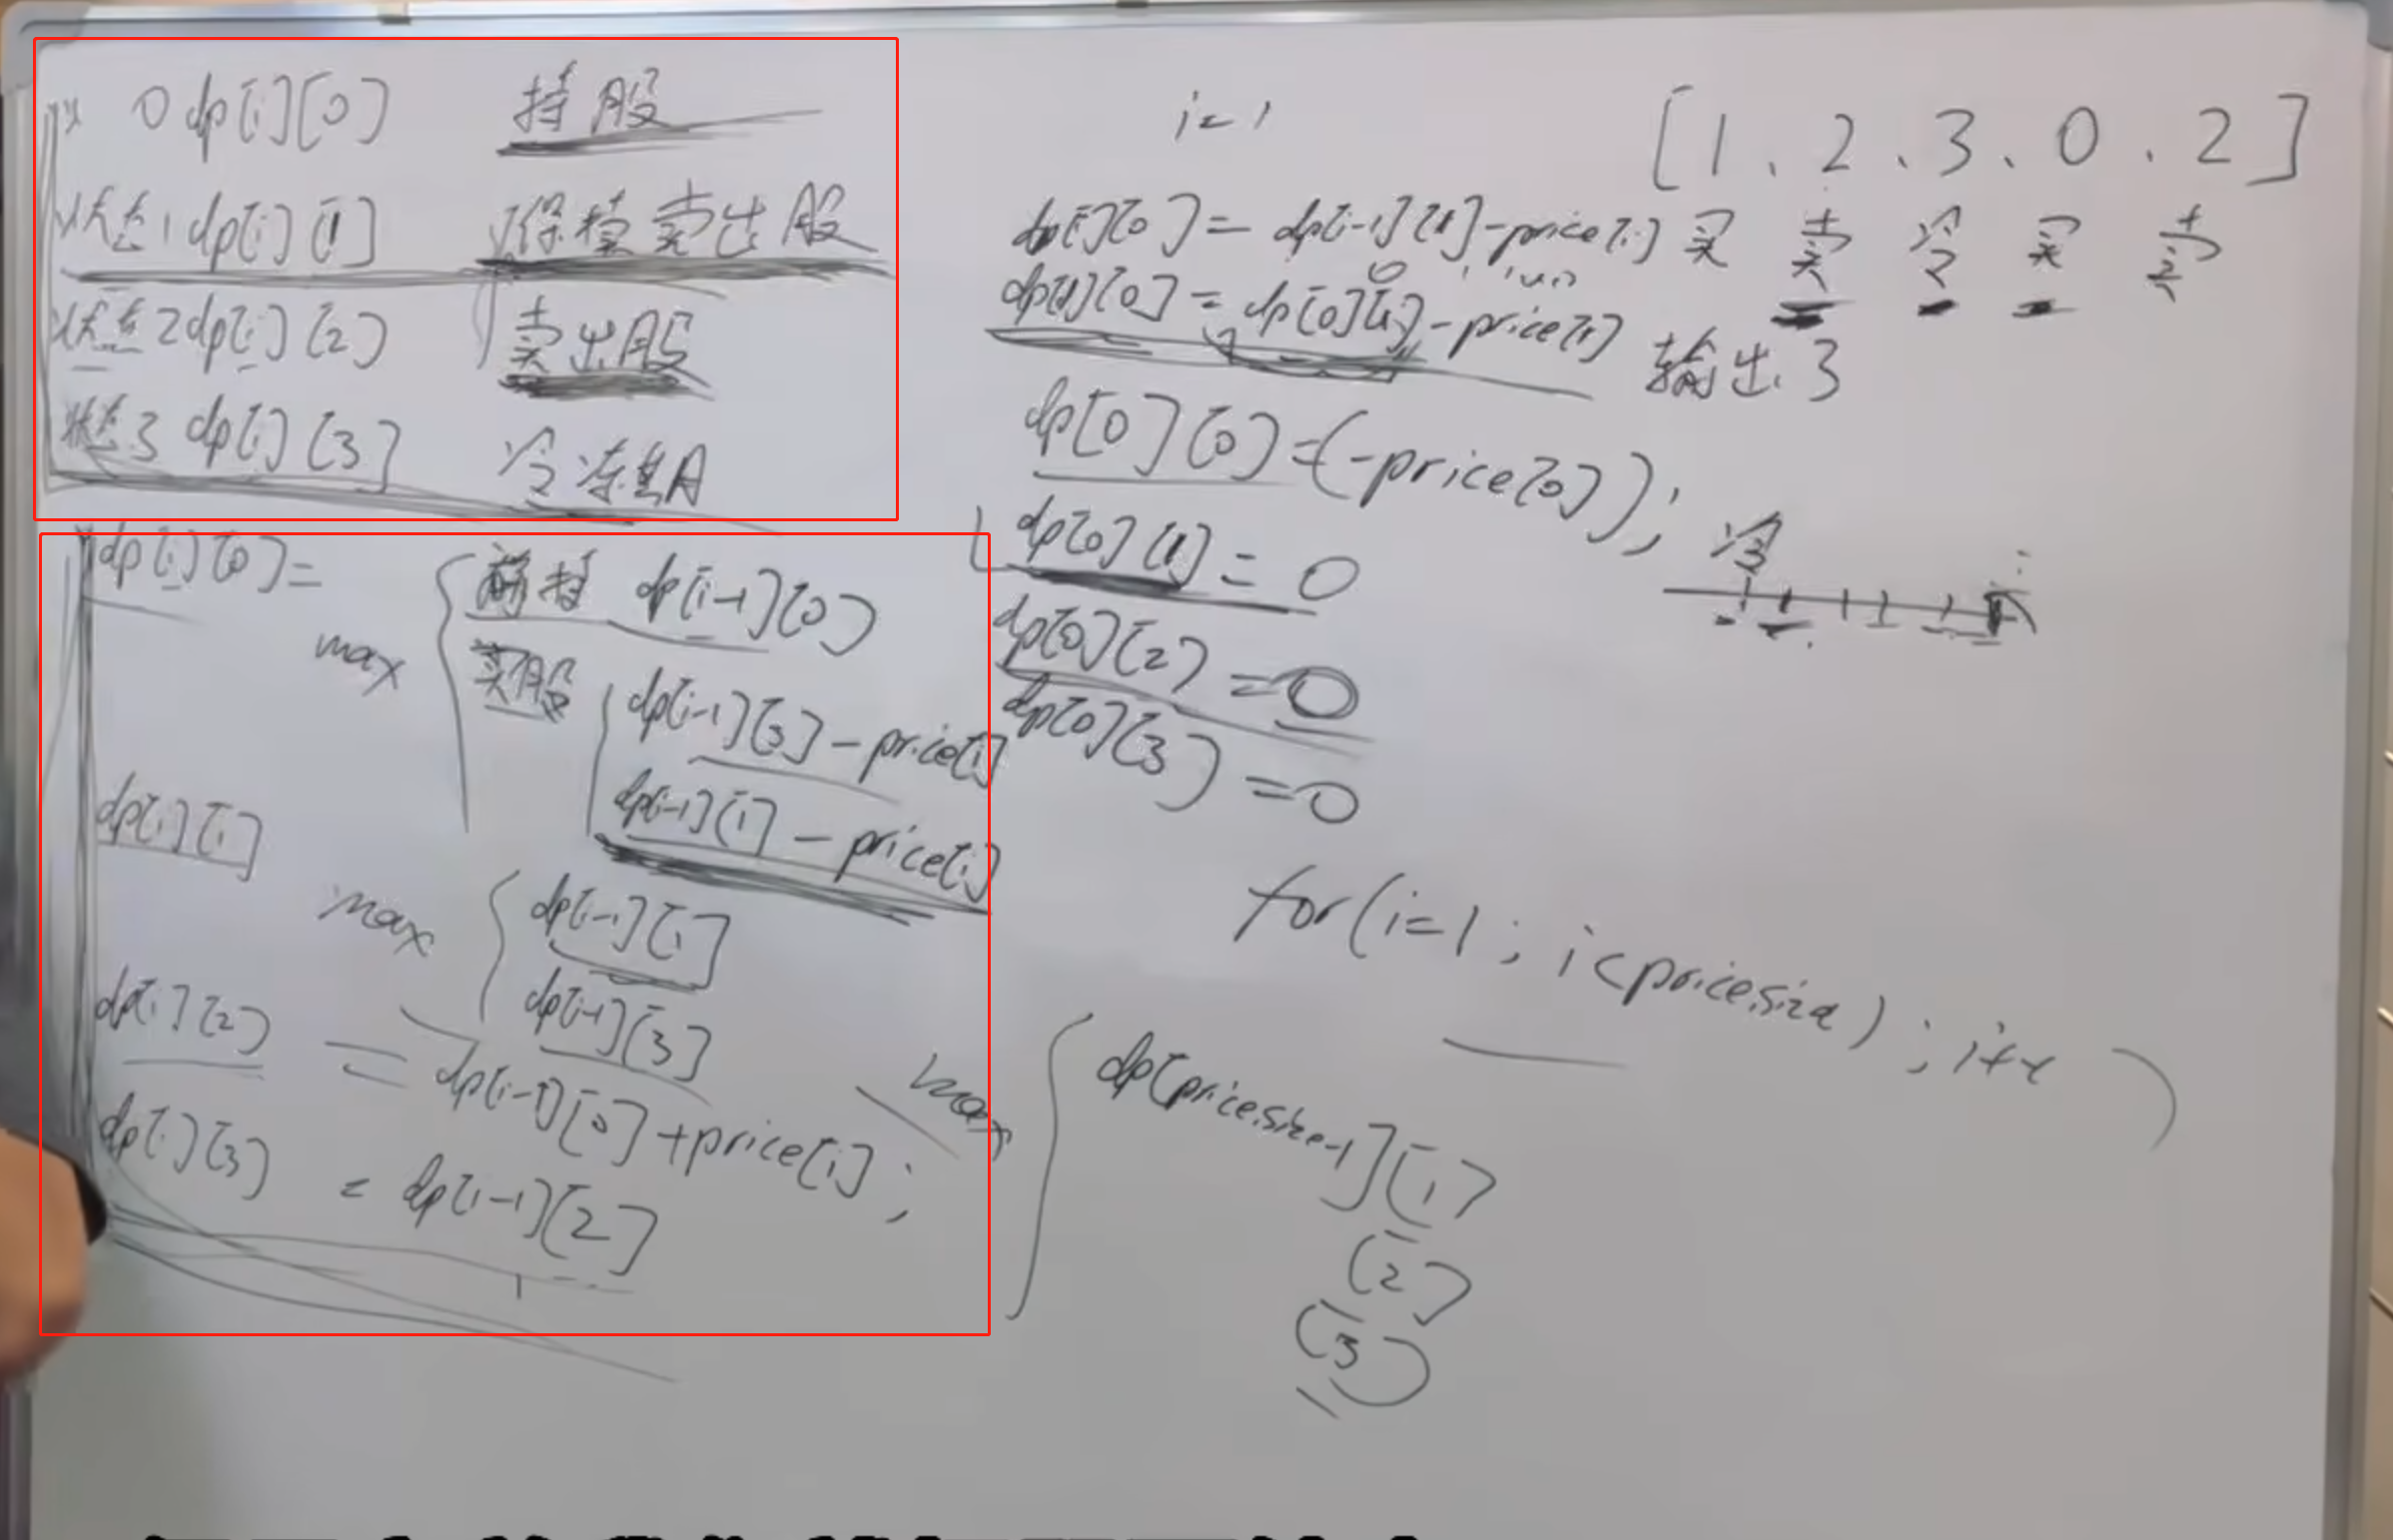 状 0 dp[i][0] 持股
状态1 dp[i][1] 保持卖出股
状态2 dp[i][2] 卖出股
状态3 dp[i][3] 冷冻期
dp[i][0] =
max
前持 dp[i-1][0]
买股
dp[i-1][3] - price[i]
dp[i-1][1] - price[i]
dp[i][1]
max
dp[i-1][1]
dp[i-1][3]
dp[i][2] = dp[i-1][0] + price[i];
dp[i][3] = dp[i-1][2]
i=1
dp[i][0] = dp[i-1][1] - price[i]
0
dp[1][0] = dp[0][1] - price[1]
dp[0][0] = (-price[0]);
dp[0][1] = 0
dp[0][2] = 0
dp[0][3] = 0
[1、2、3、0、2]
买 卖 冷 买 卖
输出 3
冷
for(i=1; i<price.size); i++)
max
dp[price.size-1][1]
[2]
[3]